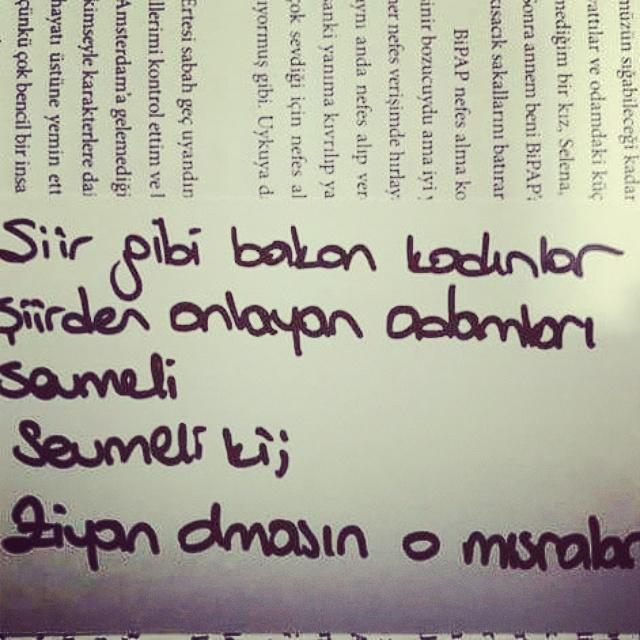 müzün sığabileceği kadar
yattılar ve odamdaki küç
mediğim bir kız, Selena,
sonra annem beni BiPAP'
kısacık sakallarını batırar
BiPAP nefes alma ko
sinir bozucuydu ama iyi
her nefes verişimde hırlay
aynı anda nefes alıp ver
sanki yanıma kıvrılıp ya
çok sevdiği için nefes al
ıyormuş gibi. Uykuya d
Ertesi sabah geç uyandın
llerimi kontrol ettim ve
Amsterdam'a gelemediği
kimseyle karakterlere dai
hayatı üstüne yemin ett
çünkü çok bencil bir insa
Siir gibi bakan kadınlar
şiirden anlayan adamları
sevmeli
Sevmeli ki;
Ziyan olmasın o mısralar